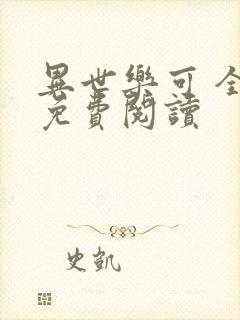 異世樂可 全
免費閱讀
史凱